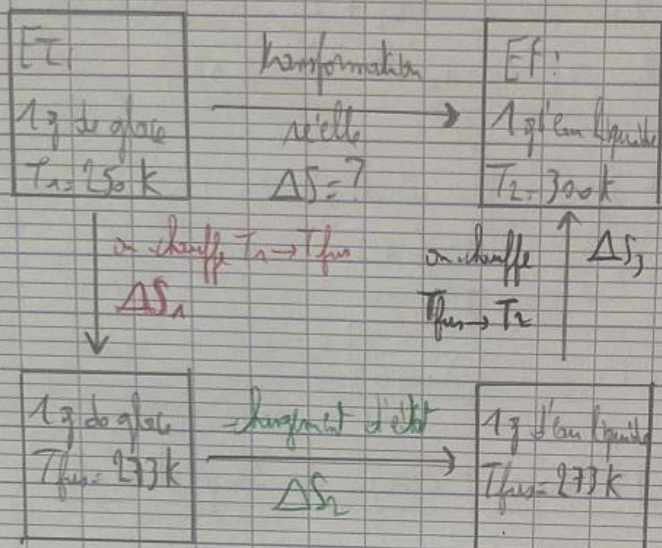 EI:
1g de glace
T₁ = 250 K
transformation
réelle
ΔS = ?
Ef:
1g d'eau liquide
T₂ = 300 K
on chauffe T₁ → Tfus
ΔS₁
on chauffe
Tfus → T₂
ΔS₃
1g de glace
Tfus = 273 K
changment d'état
ΔS₂
1g d'eau liquide
Tfus = 273 K